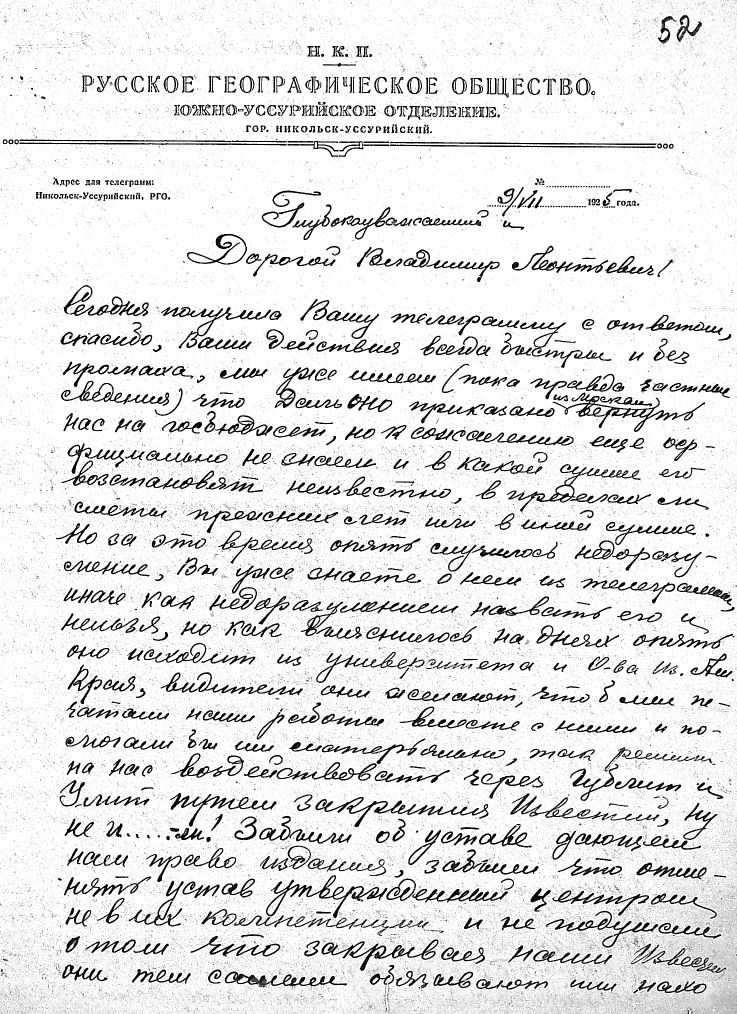 52
Н. К. П.
РУССКОЕ ГЕОГРАФИЧЕСКОЕ ОБЩЕСТВО.
ЮЖНО-УССУРИЙСКОЕ ОТДЕЛЕНИЕ.
ГОР. НИКОЛЬСК-УССУРИЙСКИЙ.
Адрес для телеграмм:
Никольск-Уссурийский, РГО.
№
9/VII 1925 года.
Глубокоуважаемый и
Дорогой Владимир Леонтьевич!
Сегодня получила Вашу телеграмму с ответом,
спасибо, Ваши действия всегда быстры и без
промаха, мы уже имеем (пока правда частные
сведения) что ДальОНО приказано из Москвы вернуть
нас на госбюджет, но к сожалению еще оф-
фициально не знаем и в какой сумме его
возстановят неизвестно, в пределах ли
сметы прежних лет или в иной сумме.
Но за это время опять случилось недоразу-
мение, Вы уже знаете о нем из телеграммы,
иначе как недоразумением назвать его и
нельзя, но как выяснилось на днях опять
оно исходит из университета и О-ва Из. Ам.
Края, видители они желают, чтоб мы пе-
чатали наши работы вместе с ними и по-
могали бы им матерьяльно, так решили
на нас воздействовать через Гублит и
Улит путем закрытия Известий, ну
не и.....-ли! Забыли об уставе дающем
нам право издания, забыли что отме-
нять устав утвержденный центром
не в их компетенции и не подумали
о том что закрывая наши Известия
они тем самым обязывают им нахо